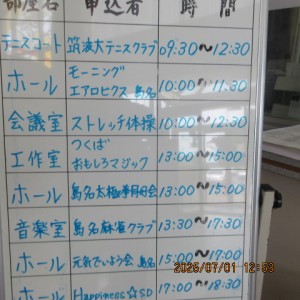 部屋名 申込者 時間
テニスコート 筑波大テニスクラブ 09:30~12:30
ホール モーニング エアロビクス 島名 10:00~11:30
会議室 ストレッチ体操 10:00~12:30
工作室 つくば おもしろマジック 13:00~15:00
ホール 島名太極拳同好会 13:00~15:00
音楽室 島名麻雀クラブ 13:30~17:30
ホール 元気でいよう会 島名 15:00~17:00
ホール Happiness☆SD 17:00~18:30
2025/07/01 12:53